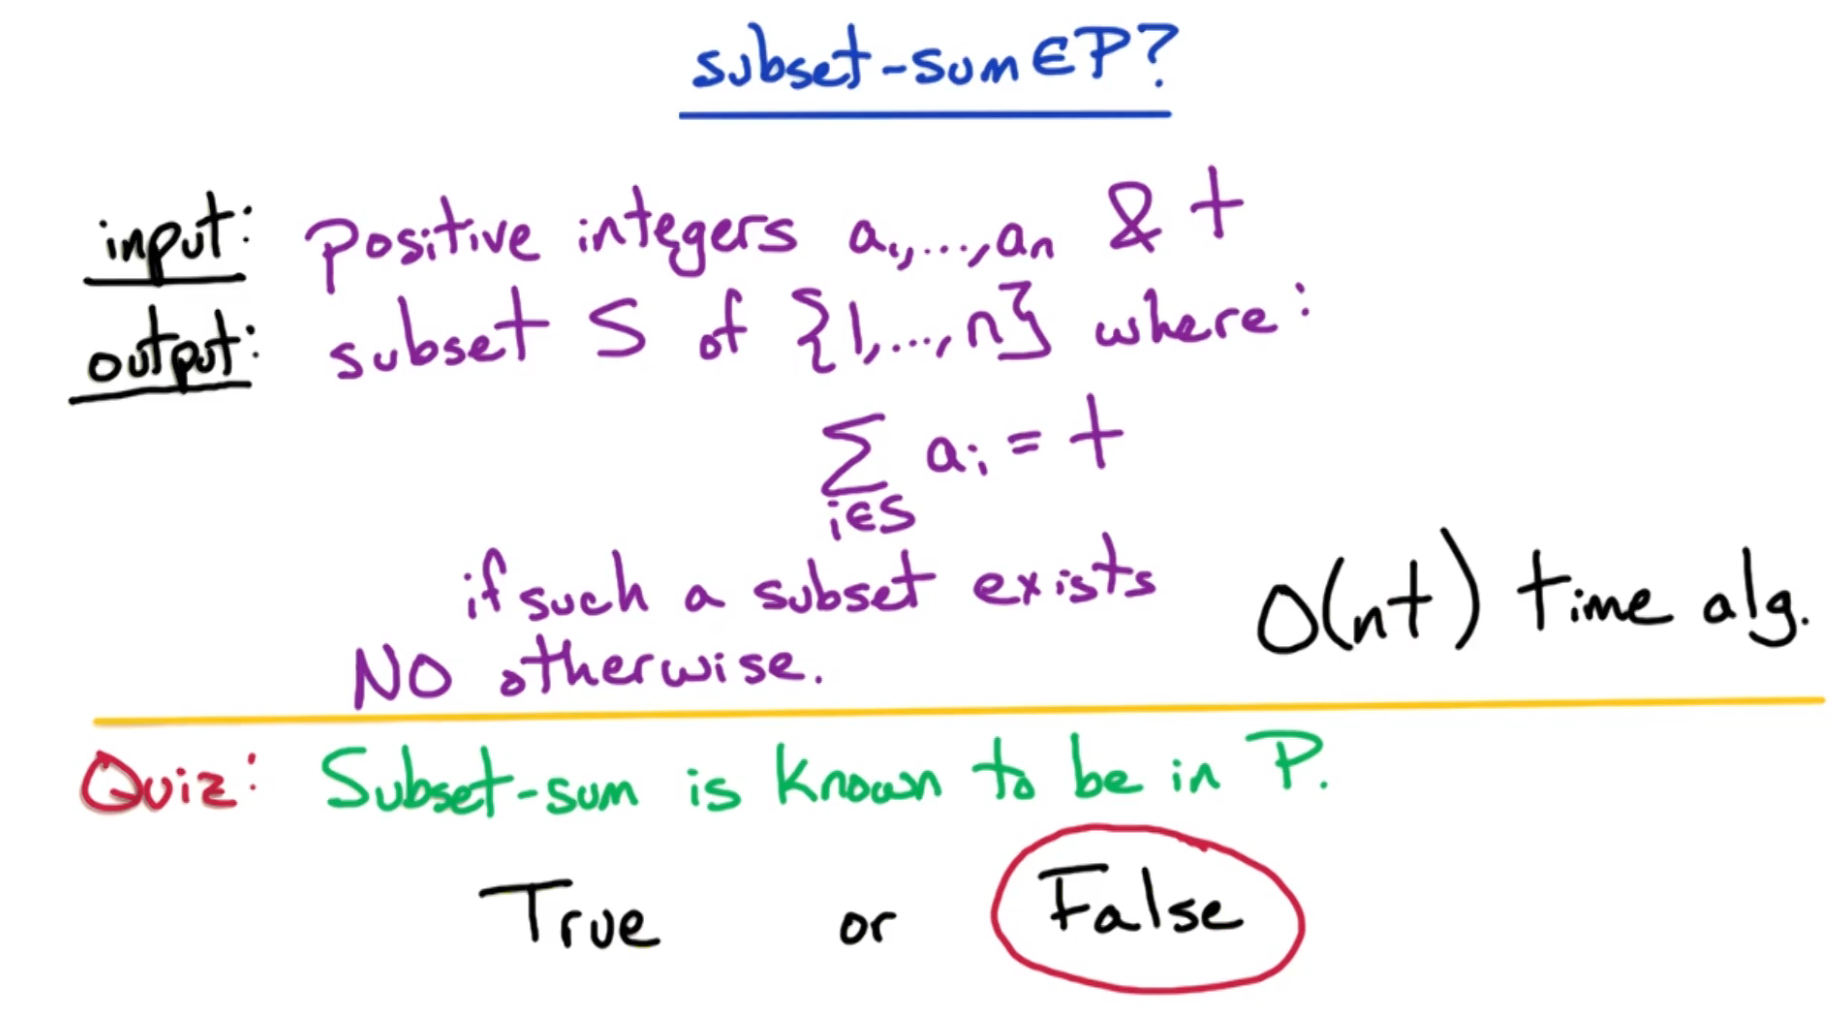 subset-sum ∈ P?
input: positive integers a₁,...,aₙ & t
output: subset S of {1,...,n} where:
∑ aᵢ = t
i∈S
if such a subset exists
O(nt) time alg.
NO otherwise.
Quiz: Subset-sum is known to be in P.
True or False